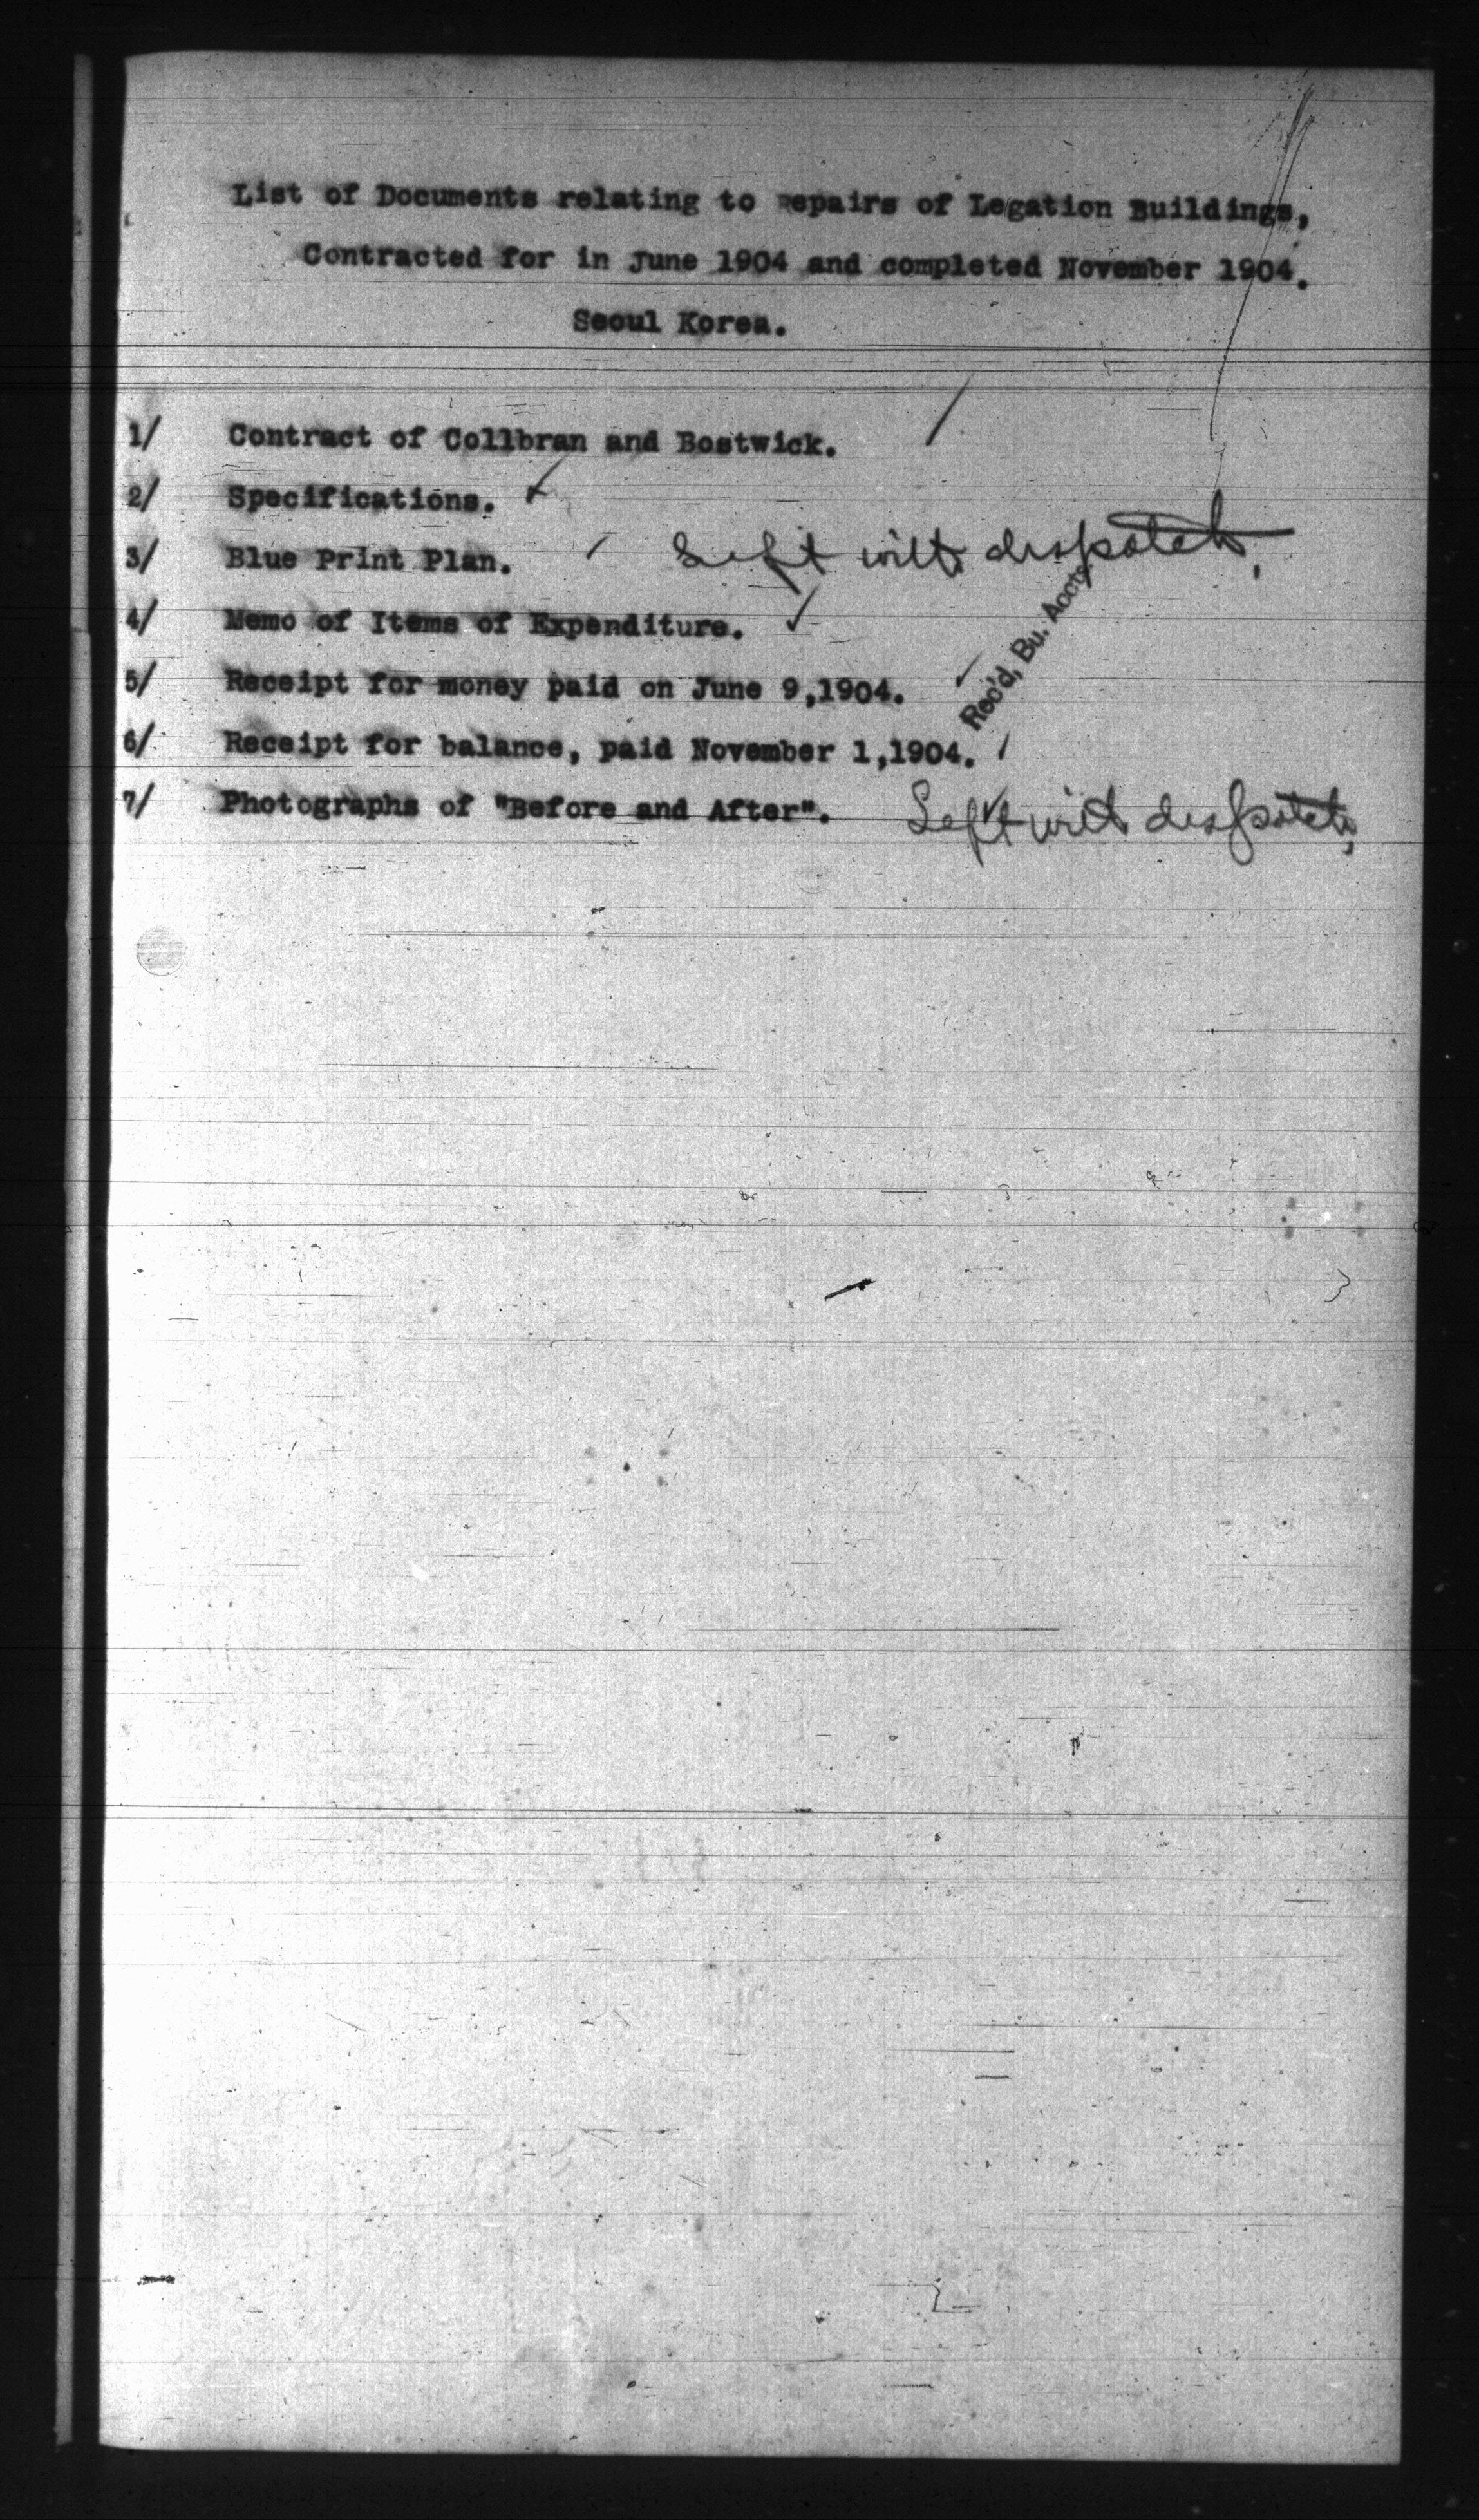 List of Documents relating to Repairs of Legation Buildings,
Contracted for in June 1904 and completed November 1904.
Seoul Korea.
1/ Contract of Collbran and Bostwick.
2/ Specifications.
3/ Blue Print Plan. Left with despatch,
4/ Memo of Items of Expenditure.
Rec'd, Bu. Accts
5/ Receipt for money paid on June 9,1904.
6/ Receipt for balance, paid November 1,1904.
7/ Photographs of "Before and After". Left with despatch,